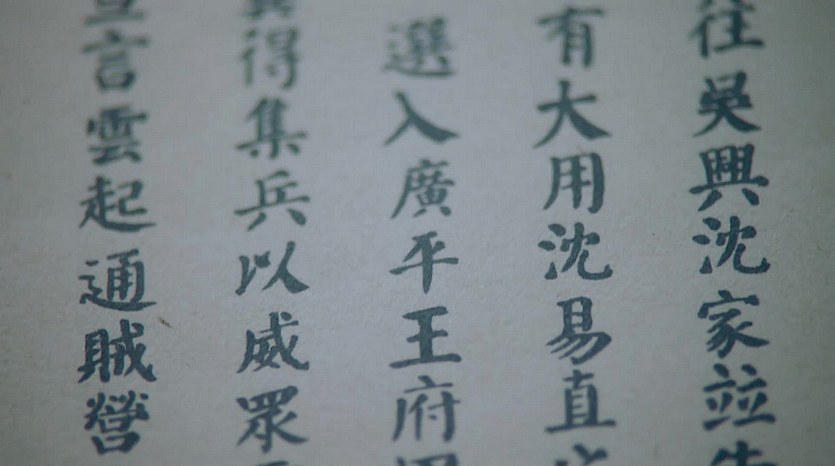 往吳興沈家竝
有大用沈易直
選入廣平王府
得集兵以威眾
言雲起通賊營